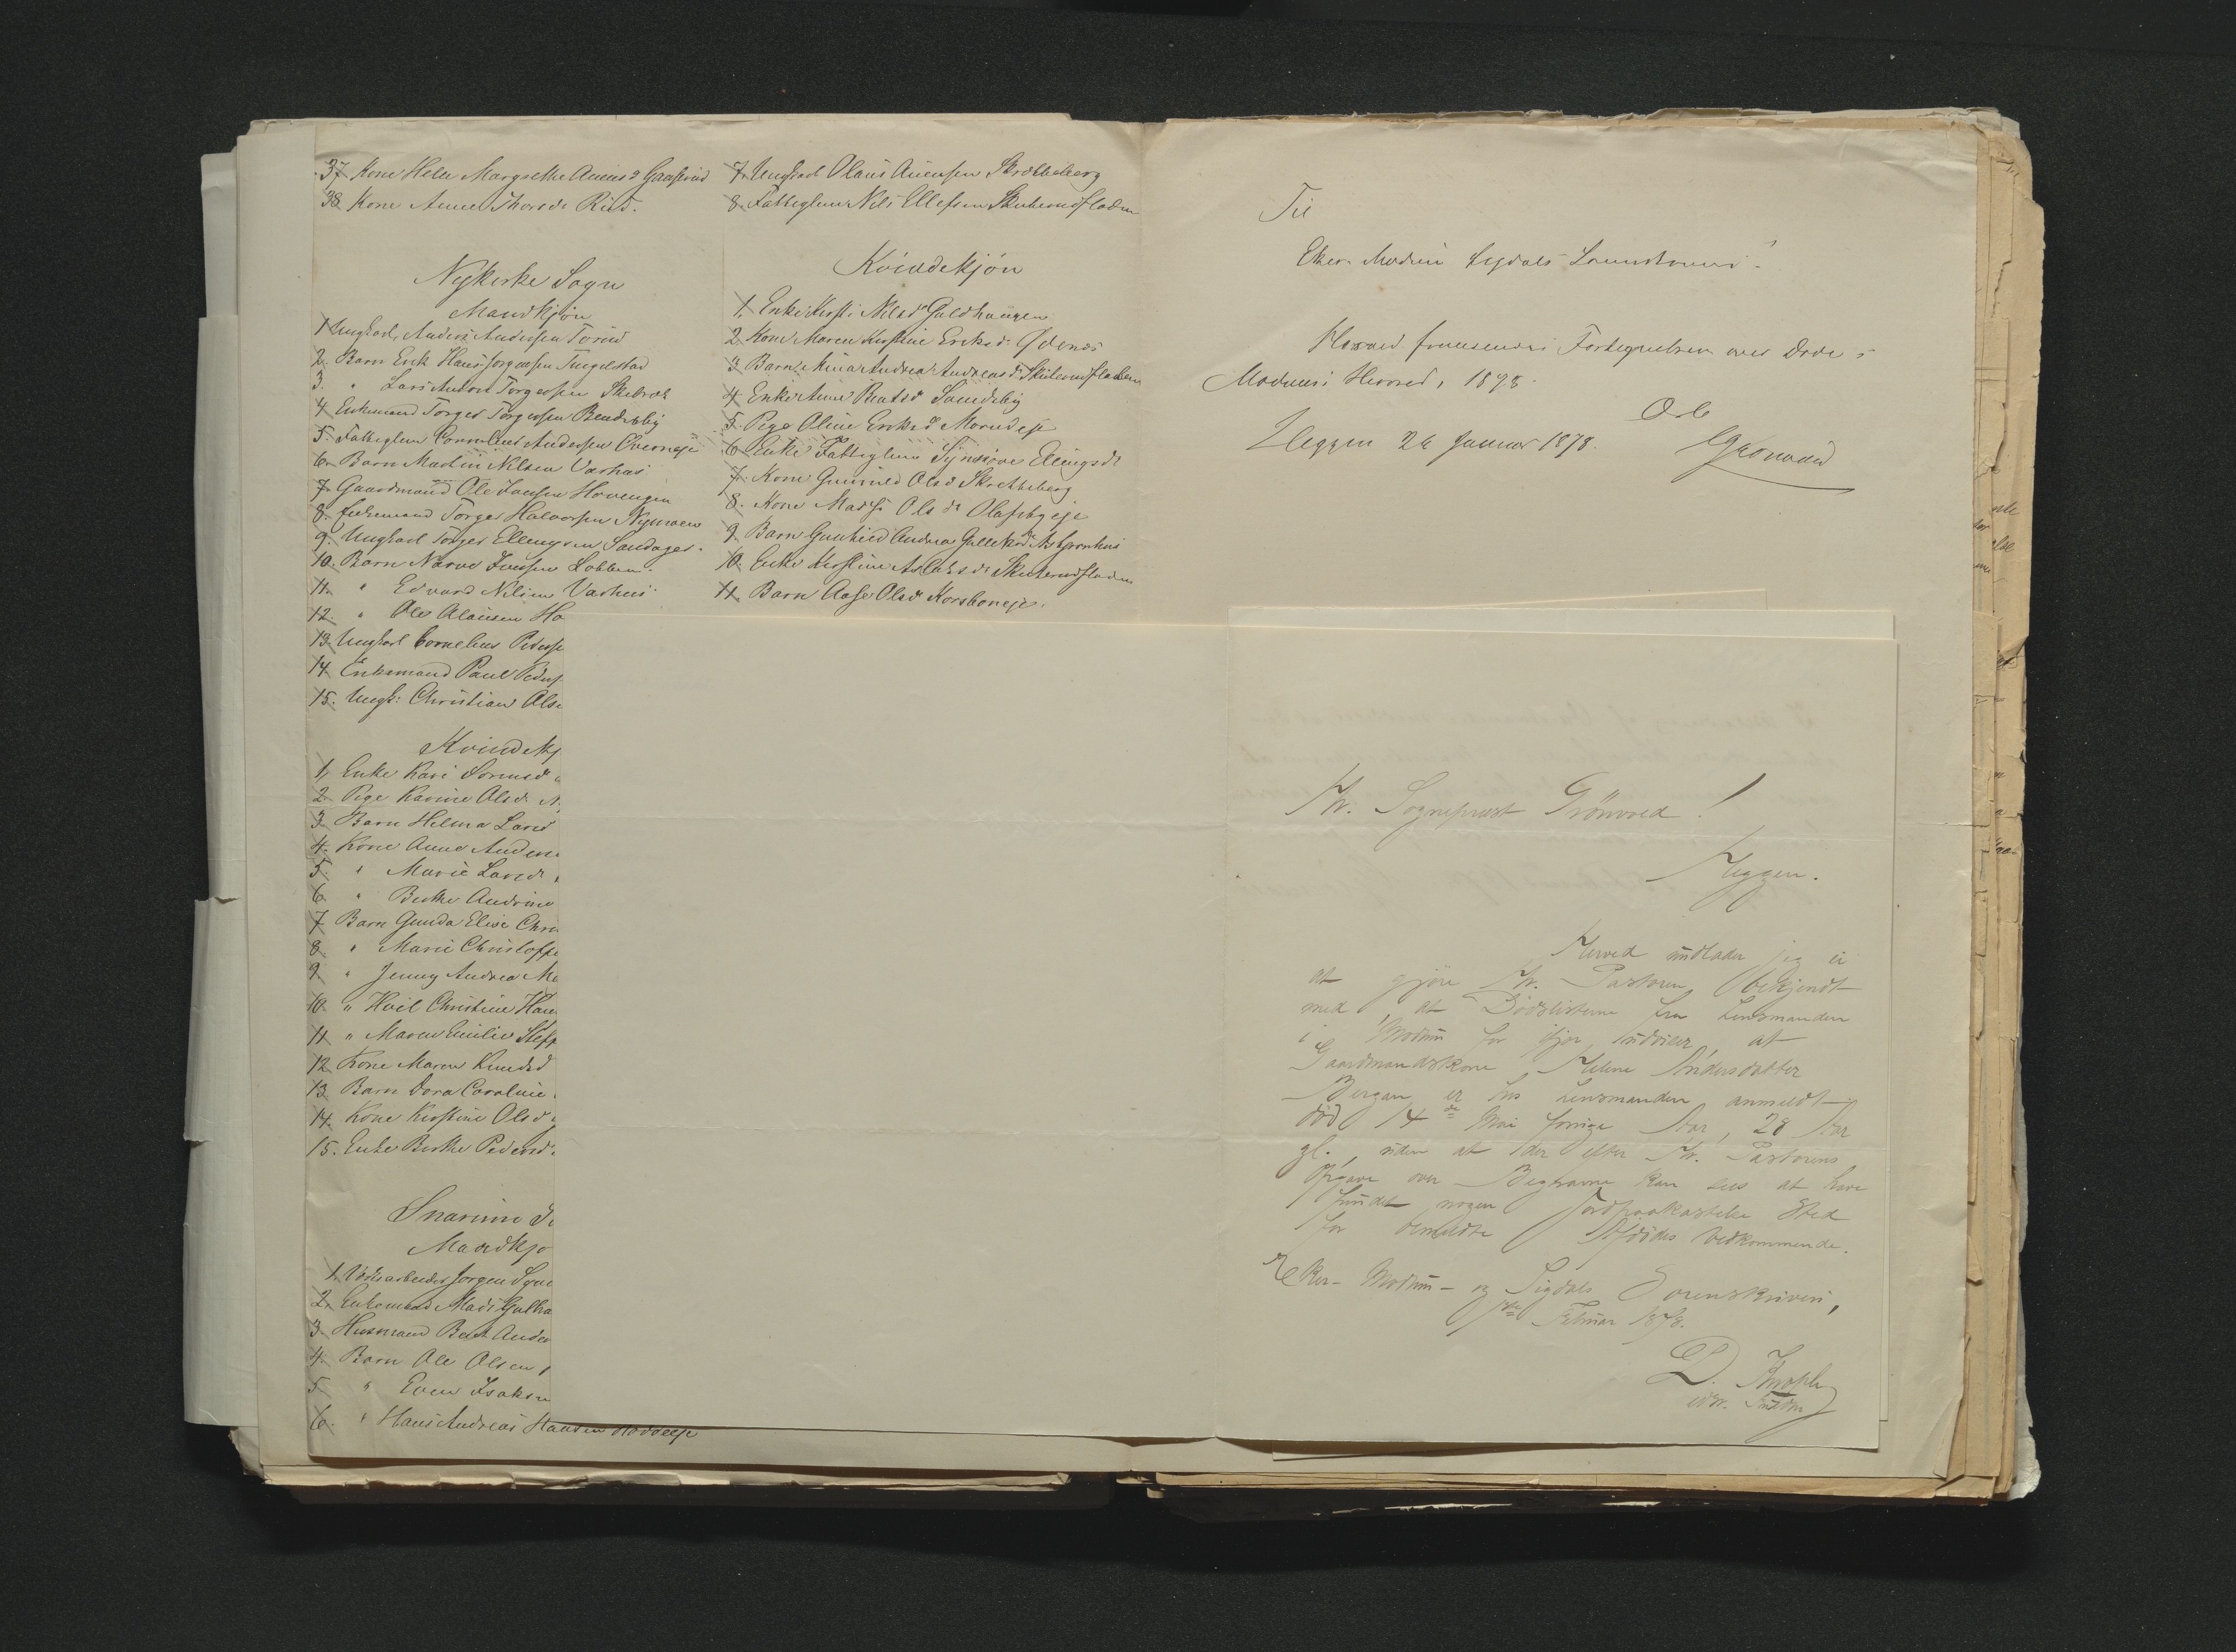 37 Kone Helene Margrethe Amunds Gaasrud
38. Kone Anne Thorsdr Rud.
Nykirke Sogn
Mandkjøn
1 Ungkarl Anders Andersen Torud
2. Barn Erik Hans Jørgensen Tingelstad
3. " Lars Anton Torgersen
4 Enkemand Torger Torgersen Bendixby
5. Fattiglem Cornelius Andersen
6. Barn Martin Nilsen Varhus
7. Gaardmand Ole Jensen Hovengen
8. Enkemand Torger Halvorsen Nymoen
9. Ungkarl Torger Ellingsen Sandager.
10. Barn Narve Jensen Lobben.
11. " Edvard Nilsen Varhus
12. " Ole Olausen Ho
13. Ungkarl Cornelius Peders
14. Enkemand Paul Peders
15. Ungk: Christian Ols
Kvindekj
1, Enke Kari Sørensd
2 Pige Karine Olsd. N
3 Barn Helma Larsd
4. Kone Anne Anders
5. " Marie Larsdr
6. " Berthe Andrine
7 Barn Gunda Elise Chri
8. " Marie Christoffe
9. " Jenny Andrea Ma
10. " Hvil Christine Han
11. " Maren Emilie Steff
12 Kone Maren Knudsd
13. Barn Dora Caroline
14. Kone Kirstine Olsd
15. Enke Berthe Pedersd.
Snarum
Mandkjø
1. Jørgen Syve
2. Enkemand Mads Gulbra
3. Husmand Bent Ander
4. Barn Ole Olsen
5. " Even Isaksen
6. " Hans Andreas Hansen
7. Ungkarl Olaus Amundsen Skretteberg
8. Fattiglem Nils Ellefsen Skuterudfladen
Kvindekjøn
1. Enke Kirsti Nilsdr Guldhaugen
2. Kone Maren Kirstine Eriksdr
3 Barn Mina Andrea Andreasdr Skuterudfladen
4. Enke Anne Bentsdr Sundsby
5. Pige Oline Eriksdr Morudeje
6. Enke Fattiglem Synnøve Ellingsdr
7. Kone Gunnild Olsdr Skretteberg
8. Kone Madsi Olsdr Olafsbyeje
9. Barn Gunhild Andrea
10. Enke Kirstine Aslaksdr Skuterudfladen
11. Barn Aase Olsdr Korsboneje.
Til
Eker Modum Sigdals Sorenskriveri.
Hoslagt fremsendes Fortegnelsen over Døde i
Modums Herred, 1878.
Heggen 26 Januar 1878.
Grønvold
Hr. Sogneprest Grönvold!
Heggen.
Herved undlader jeg ei
at gjöre Hr. Pastoren bekjendt
med, at Dödslisterne fra Lensmanden
i Modum for ifjor udviser, at
Gaardmandskone Helene Andersdatter
Bergan er hos Lensmanden anmeldt
död 14de Mai forrige Aar, 28 Aar
gl., uden at der efter Hr. Pastorens
Opgave over Begravne kan sees at have
fundet nogen Jordpaakastelse Sted
for bemeldte Afdödes Vedkommende.
Eker- Modum- og Sigdals Sorenskriveri,
Februar 1878.
D. Knoph